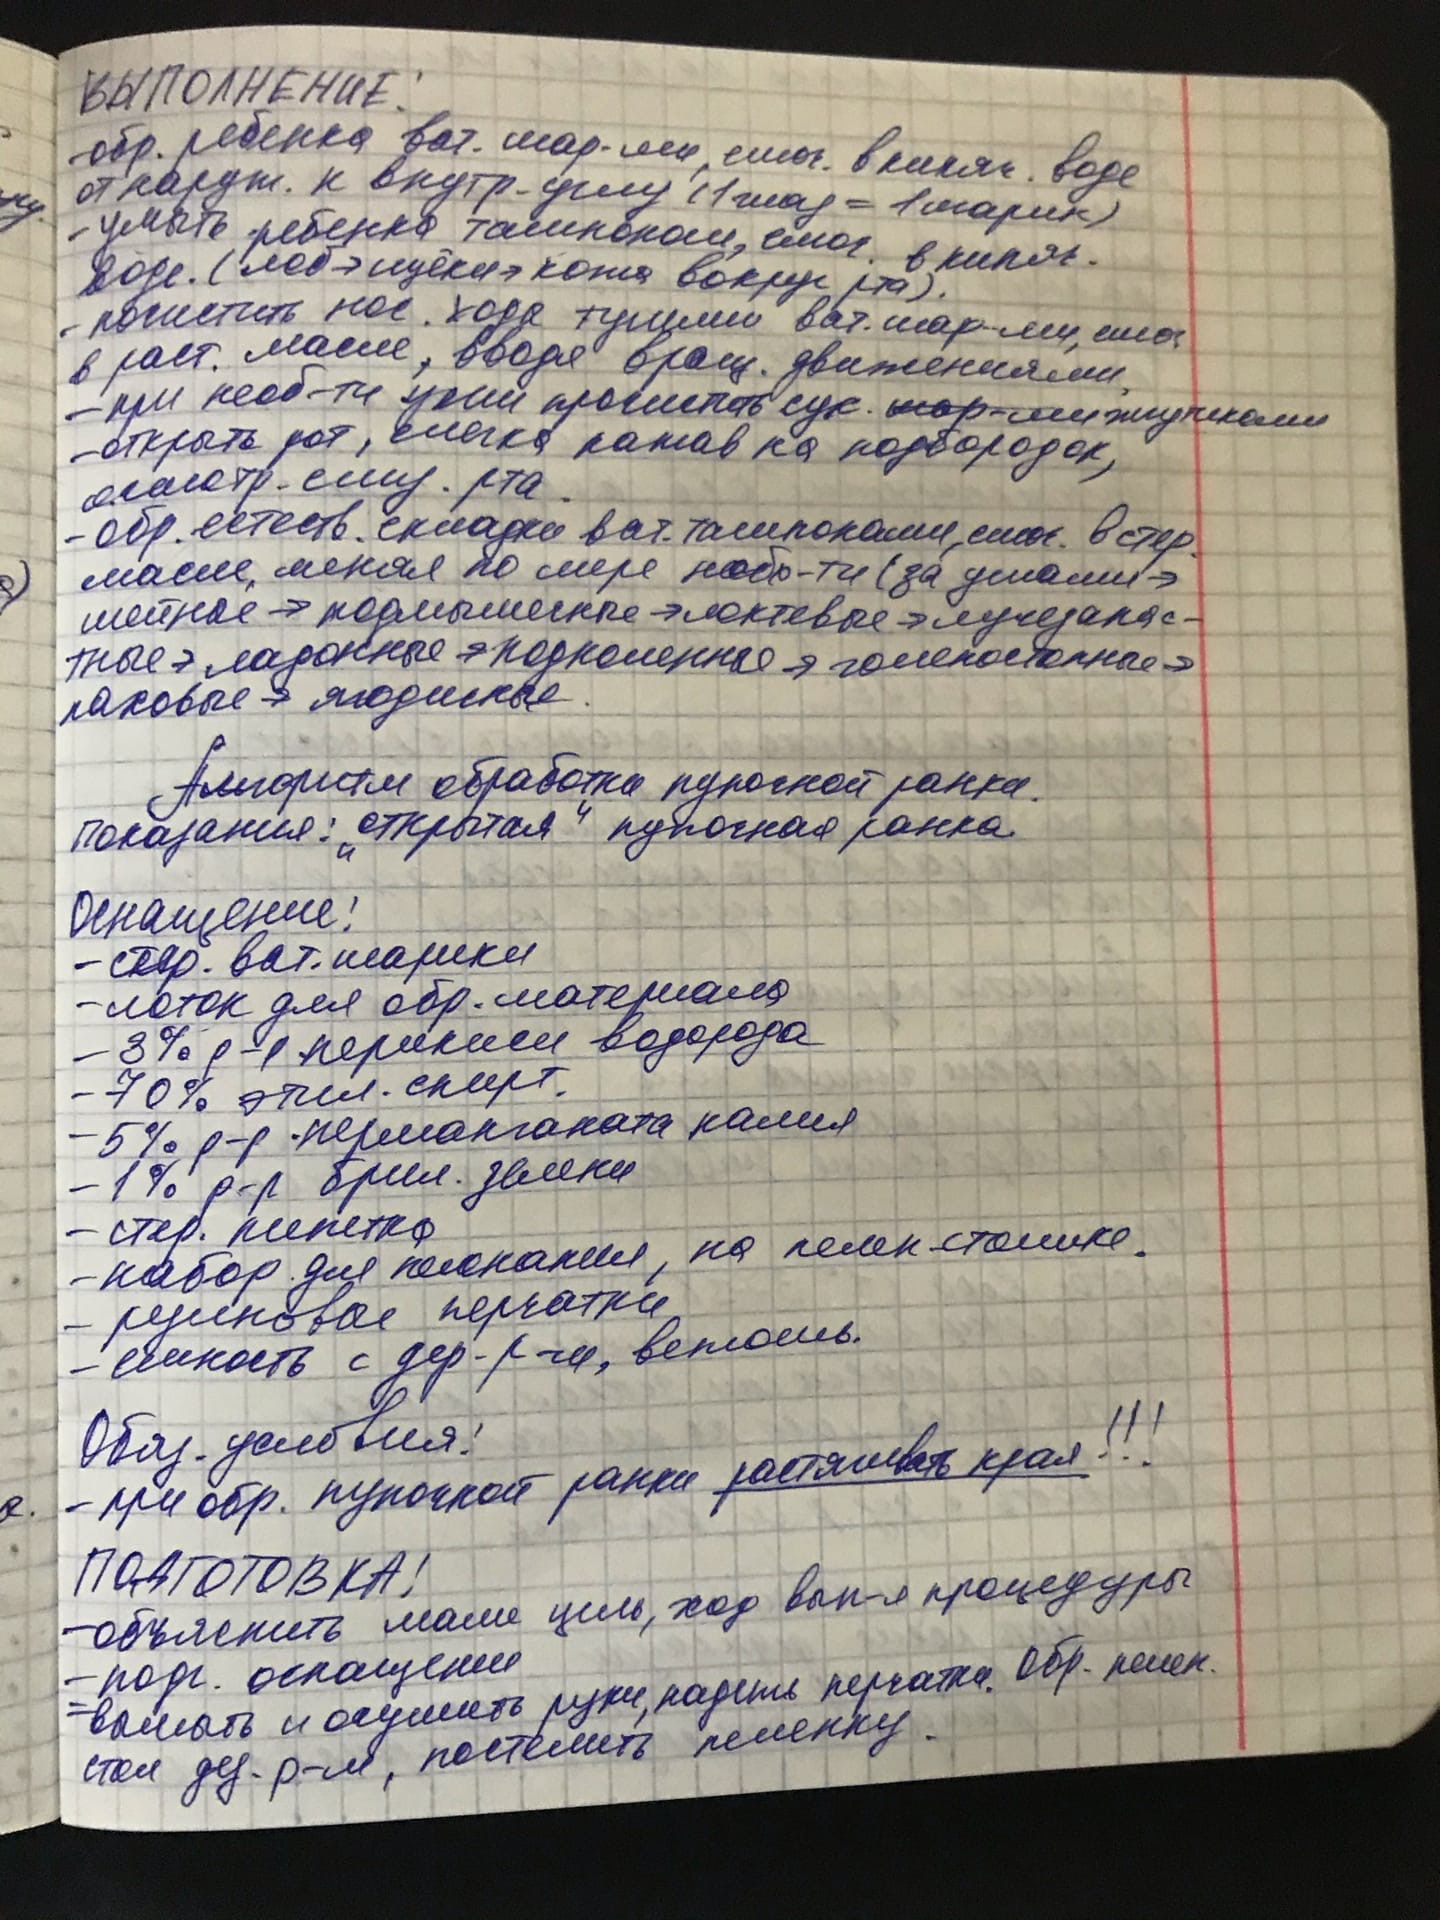 ВЫПОЛНЕНИЕ!
-обр. ребенка ват. шар-ми, смоч. в кипяч. воде
от наруж. к внутр. углу (1 глаз = 1 шарик)
- умыть ребенка тампоном, смоч. в кипяч.
воде. (лоб → щёки → кожа вокруг рта).
- почистить нос. хода тугими ват. шар-ми, смоч
в раст. масле, вводя вращ. движениями.
- при необ-ти уши прочистить сух. шар-ми жгутиками
- открыть рот, слегка нажав на подбородок,
осмотр. слиз. рта.
- обр. естеств. складки ват. тампонами, смоч. в стер.
масле, меняя по мере необ-ти (за ушами →
шейные → подмышечные → локтевые → лучезапяс-
тные → ладонные → подколенные → голеностопные →
паховые → ягодичные.
Алгоритм обработки пупочной ранки.
Показания: „открытая" пупочная ранка.
Оснащение!
- стер. ват. шарики
- лоток для обр. материала
- 3% р-р перикиси водорода
- 70% этил. спирт.
- 5% р-р перманганата калия
- 1% р-р брил. зелени
- стер. пипетка
- набор для пеленания, на пелен. столике.
- резиновые перчатки
- емкость с дез. р-ми, ветошь.
Обяз. условия!
- при обр. пупочной ранки растягивать края!!!
ПОДГОТОВКА!
- объяснить маме цель, ход вып-я процедуры
- подг. оснащение
= вымыть и осушить руки, надеть перчатки. Обр. пелен.
стол дез. р-м, постелить пеленку.